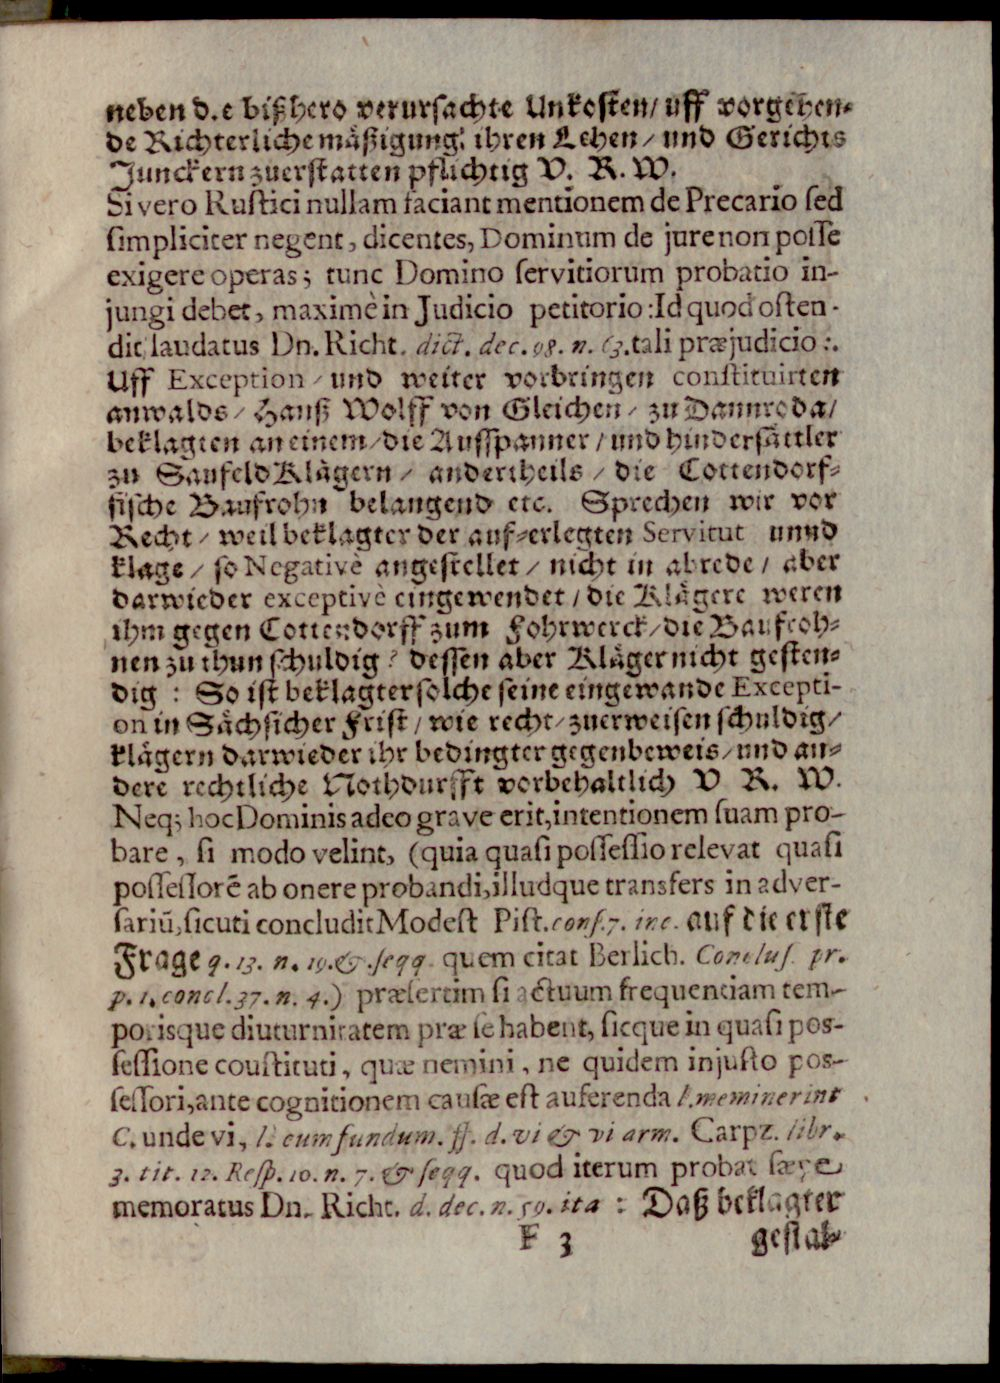 neben d.e bißhero verursachte Unkosten/ uff vorgehen-
de Richterliche mäßigung: ihren Lehen/ und Gerichts
Junckern zuerstatten pflichtig V. R. W.
Si vero Rustici nullam faciant mentionem de Precario sed
simpliciter negent, dicentes, Dominum de jure non posse
exigere operas; tunc Domino servitiorum probatio in-
jungi debet, maximè in Judicio petitorio: Id quod osten-
dit laudatus Dn. Richt. dict. dec. 98. n. 63. tali præjudicio:.
Uff Exception/ und weiter vorbringen constituirten
anwalds/ Hanß Wolff von Gleichen/ zu Dannroda/
beklagten an einem/ die Ausspanner/ und hindersättler
zu Saufeld Klägern/ andertheils/ die Cottendorf-
fische Baufrohn belangend etc. Sprechen wir vor
Recht/ weil beklagter der auf-erlegten Servitut unnd
klage/ so Negativè angestellet/ nicht in abrede/ aber
darwieder exceptivè eingewendet/ die Klägere weren
ihm gegen Cottendorff zum Fohrwerck/ die Baufroh-
nen zu thun schuldig? dessen aber Kläger nicht gesten-
dig: So ist beklagter solche seine eingewande Excepti-
on in Sächsicher Frist/ wie recht/ zuerweisen schuldig/
klägern darwieder ihr bedingter gegenbeweis/ und an-
dere rechtliche Nothdurfft vorbehaltlich V R. W.
Neq; hoc Dominis adeo grave erit, intentionem suam pro-
bare, si modo velint, (quia quasi possessio relevat quasi
possessorē ab onere probandi, illudque transfers in adver-
sariū, sicuti concludit Modest Pist. cons. 7. inc. auf die erste
Frage q. 13. n. 19. &. seqq. quem citat Berlich. Conclus. pr.
p. 1. concl. 37. n. 4.) præsertim si actuum frequentiam tem-
porisque diuturnitatem præ se habent, sicque in quasi pos-
sessione coustituti, quæ nemini, ne quidem injusto pos-
sessori, ante cognitionem causæ est auferenda l. meminerint
C. unde vi, l. cum fundum. ff. d. vi & vi arm. Carpz. libr.
3. tit. 12. Resp. 10. n. 7. & seqq. quod iterum probat sæpe
memoratus Dn. Richt. d. dec. n. 59. ita: Daß beklagter
F 3 gestal-